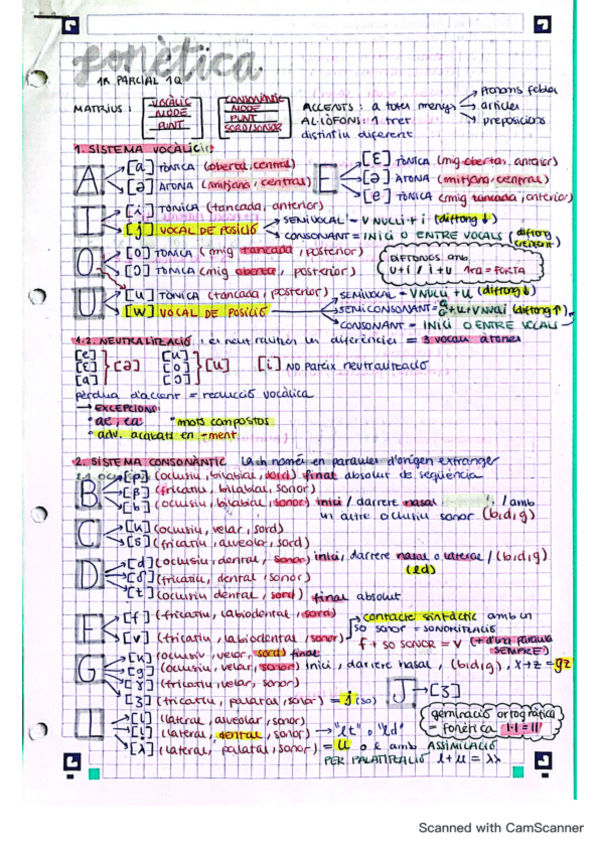 fonètica
1R PARCIAL 1Q
MATRIUS: VOCÀLIC MODE PUNT CONSONÀNTIC MODE PUNT SORD/SONOR
ACCENTS: a totes menys → Pronoms febles → articles → preposicions
AL·LÒFONS: 1 tret distintiu diferent
1. SISTEMA VOCÀLIC
A [a] TÒNICA (oberta, central)
[ə] ÀTONA (mitjana, central)
E [ɛ] TÒNICA (mig oberta, anterior)
[ə] ÀTONA (mitjana, central)
[e] TÒNICA (mig tancada, anterior)
I [i] TÒNICA (tancada, anterior)
[j] VOCAL DE POSICIÓ SEMIVOCAL = V NUCLI + i (diftong ↓)
CONSONANT = INICI O ENTRE VOCALS (diftong creixent)
O [o] TÒNICA (mig tancada, posterior)
[ɔ] TÒNICA (mig oberta, posterior)
DIFTONGS amb u+i / i+u ARA = FORTA
U [u] TÒNICA (tancada, posterior)
[w] VOCAL DE POSICIÓ SEMIVOCAL = V NUCLI + U (diftong ↓)
SEMICONSONANT = +u+V Nucli (diftong ↑)
CONSONANT = INICI O ENTRE VOCALS
1.2. NEUTRALITZACIÓ: es neutralitzen les diferències = 3 vocals àtones
[e] [ɛ] [a] } [ə] [u] [o] [ɔ] } [u] [i] NO PATEIX NEUTRALITZACIÓ
pèrdua d'accent = reducció vocàlica
→ EXCEPCIONS:
• ae, ea • mots compostos
• adv. acabats en -ment
2. SISTEMA CONSONÀNTIC La h només en paraules d'origen extranger
B [p] (oclusiu, bilabial, sord) final absolut de seqüència
[β] (fricatiu, bilabial, sonor)
[b] (oclusiu, bilabial, sonor) inici / darrere nasal / amb un altre oclusiu sonor (b,d,g)
C [k] (oclusiu, velar, sord)
[s] (fricatiu, alveolar, sord)
D [d] (oclusiu, dental, sonor) inici, darrere nasal o lateral / (b,d,g) (ld)
[ð] (fricatiu, dental, sonor)
[t] (oclusiu dental, sord) final absolut
F [f] (fricatiu, labiodental, sord)
[v] (fricatiu, labiodental, sonor)
contacte sintàctic amb un so sonor = sonorització
f + so sonor = v (+ d'una paraula SEMPRE!)
G [k] (oclusiu, velar, sord) final
[g] (oclusiu, velar, sonor) inici, darrere nasal, (b,d,g), x→z = gz
[ɣ] (fricatiu, velar, sonor)
[ʒ] (fricatiu, palatal, sonor) = j (so)
J → [ʒ]
L [l] (lateral, alveolar, sonor)
[l̪] (lateral, dental, sonor) → "lt" o "ld"
[ʎ] (lateral, palatal, sonor) = ll o l amb ASSIMILACIÓ PER PALATITZACIÓ l+ll = λλ
geminació ortogràfica = fonètica l·l = ll
Scanned with CamScanner